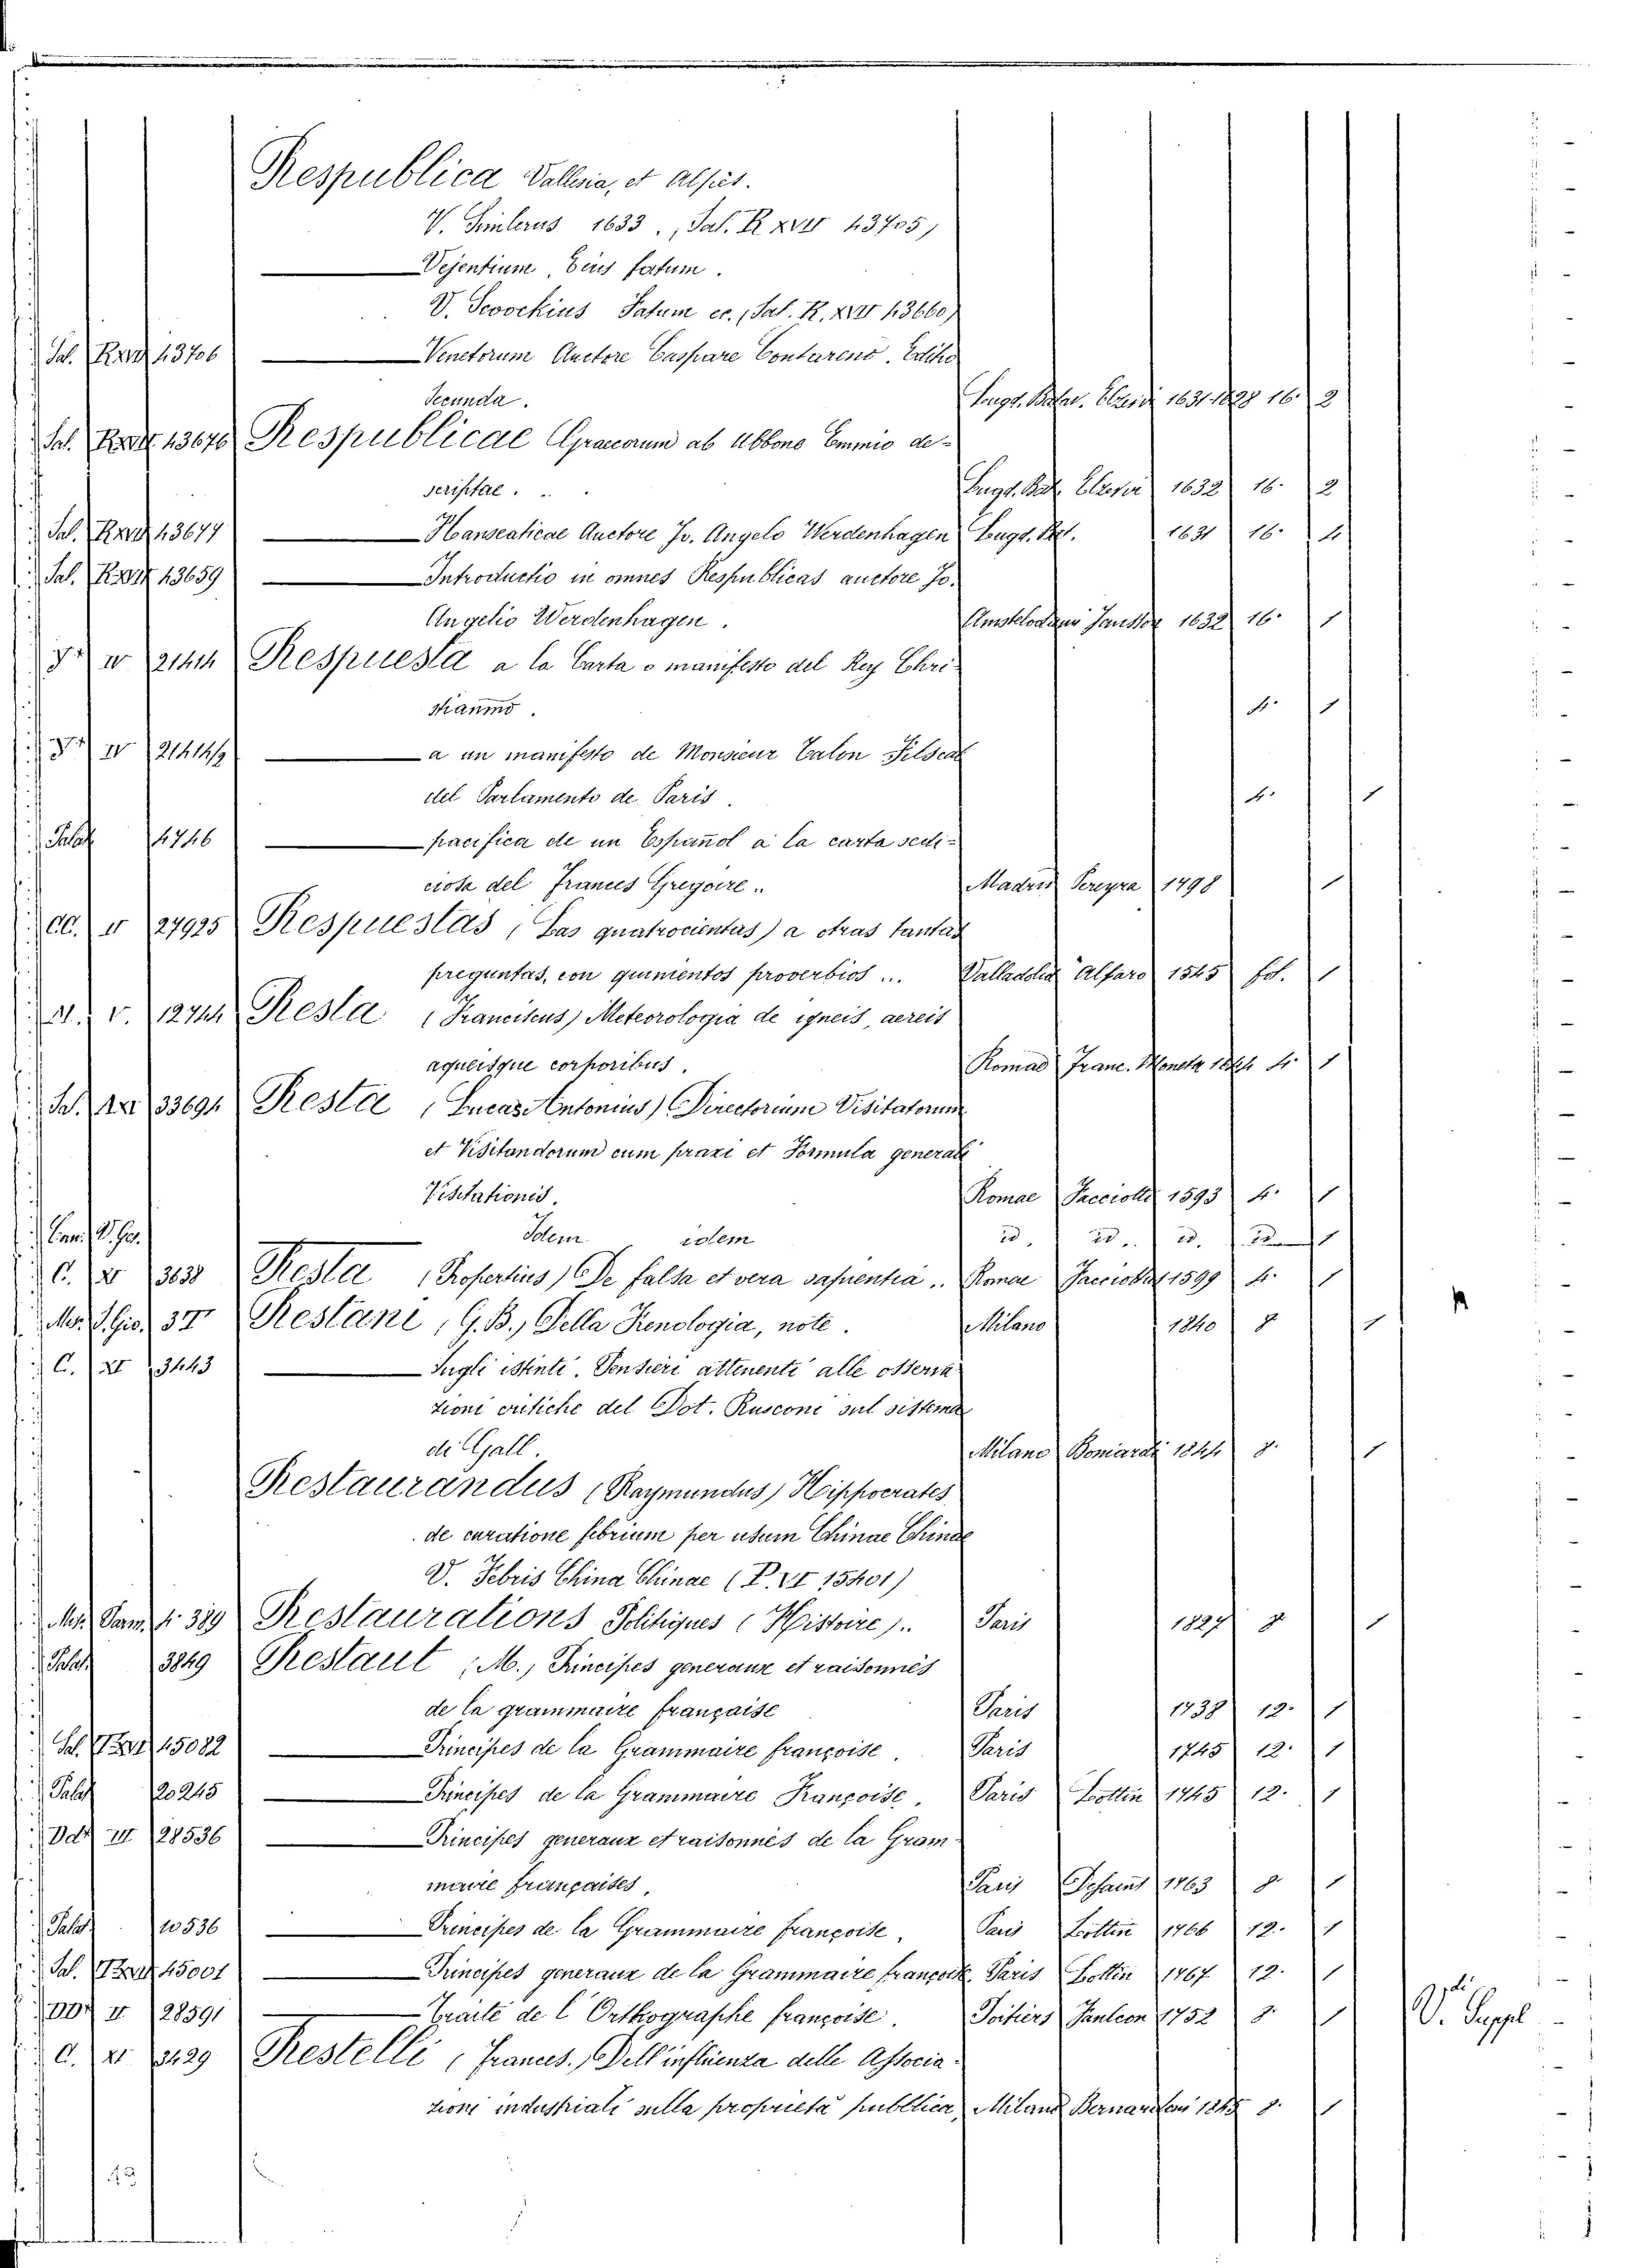 Respublica Vallesia, et Alpes.
V. Simlerus 1633. (Sal. R XVII 43705)
Vejentium, Ejus fatum.
V. Scoockius Fatum ec. (Sal. R. XVII 43660)
Sal. R XVII 43706 Venetorum Auctore Caspare Contareno. Editio
Secunda. Lugd. Batav. Elzevir 1631-1628 16. 2
Sal. R XVII 43676 Respublicae Graecorum ab Ubbone Emmio de-
scriptae. .. Lugd. Bat. Elzevir 1632 16. 2
Sal. R XVII 43677 Hanseaticae Auctore Jo. Angelo Werdenhagen Lugd. Bat. 1631 16. 4
Sal. R XVII 43659 Introductio in omnes Respublicas auctore Jo.
Angelio Werdenhagen. Amstelodami Jansson 1632 16. 1
IV 21414 Respuesta a la Carta o manifesto del Rey Chri-
stianmo. 4. 1
IV 21414/2 a un manifesto de Monsieur Talon Filscal
del Parlamento de Paris. 4. 1
Palat 4746 pacifica de un Español a la carta sedi-
ciosa del Frances Gregoire.. Madrid Pereyra 1798 1
CC. II 27925 Respuestas, (Las quatrocientas) a otras tantas
preguntas, con quinientos proverbios ... Valladolid Alfaro 1545 fol. 1
V. 12744 Resta (Franciscus) Meteorologia de igneis, aereis
aqueisque corporibus. Romae Franc. Moneta 1644 4. 1
33694 Resta (Lucas Antonius) Directorium Visitatorum
et Visitandorum cum praxi et Formula generali
Visitationis. Romae Facciotti 1593 4. 1
Idem idem id. id.. id. id. 1
C. 3638 Resta (Propertius) De falsa et vera sapientia.. Romae Facciottus 1599 4. 1
37 Restani (G. B.) Della Frenologia, note. Milano 1840 8 1
C. XI 3443 Sugli istinti. Pensieri attenenti alle osserva-
zioni critiche del Dot. Rusconi sul sistema
di Gall. Milano Boniardi 1844 8. 1
Restaurandus (Raymundus) Hippocrates
de curatione febrium per usum Chinae Chinae
V. Febris China Chinae (P. VI 15401)
389 Restaurations Politiques (Histoire).. Paris 1827 8 1
Palat. 3849 Restaut (M.) Principes generaux et raisonnés
de la grammaire française Paris 1738 12. 1
45082 Principes de la Grammaire françoise. Paris 1745 12. 1
Palat 20245 Principes de la Grammaire Françoise. Paris Lottin 1745 12. 1
III 28536 Principes generaux et raisonnés de la Gram-
maire françaises. Paris Desaint 1763 8. 1
Palat. 10536 Principes de la Grammaire françoise, Paris Lottin 1766 12. 1
Sal. 45001 Principes generaux de la Grammaire françoise. Paris Lottin 1767 12. 1
II 28591 Traité de l'Orthographe françoise. Poitiers Faulcon 1752 8. 1 V. Suppl
C. XI 3429 Restelli (Frances.) Dell'influenza delle Associa-
zioni industriali sulla proprietà pubblica, Milano Bernardoni 1845 8. 1
42